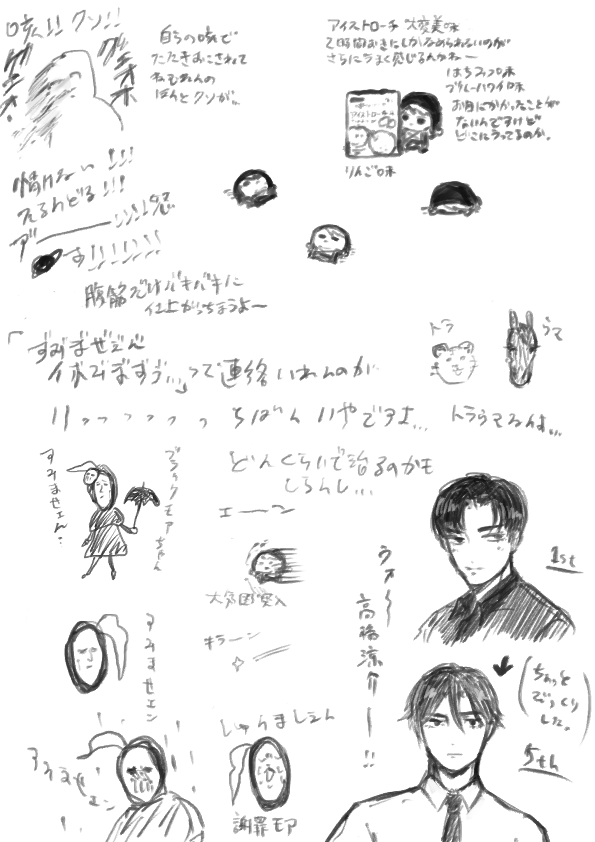 咳ん!! クソ!!
グエオホ
グエオ、
自らの咳で
たたきおこされて
私もねんの
ほんとクソが。
アイストローチ 大変美味
2時間おきにしかなめられないのが
さらにうまく感じるんかねー
はちみつ味
ブルーハワイ味
お目にかかったことが
ないんですけど
どこにうってるのか。
アイストローチ
りんご味
情けない!!!
腹筋だけバキバキに
仕上がっちまうよ〜
「ずみまぜえん
休みまずぅ…」って連絡いれんのが
トラ
うま
いっっっっっちばんいやですよ… トラウマなんよ…
どんくらいで治るのかも
しらんし…
すみませェん…
ブラックモアちゃん
エーン
大気圏突入
キラーン
すみませェン
すみませェン
しゅみましぇん
謝罪モア
ウォ〜 高橋涼介ー!!
1st
(ちょっと
びっくり
した。)
5th